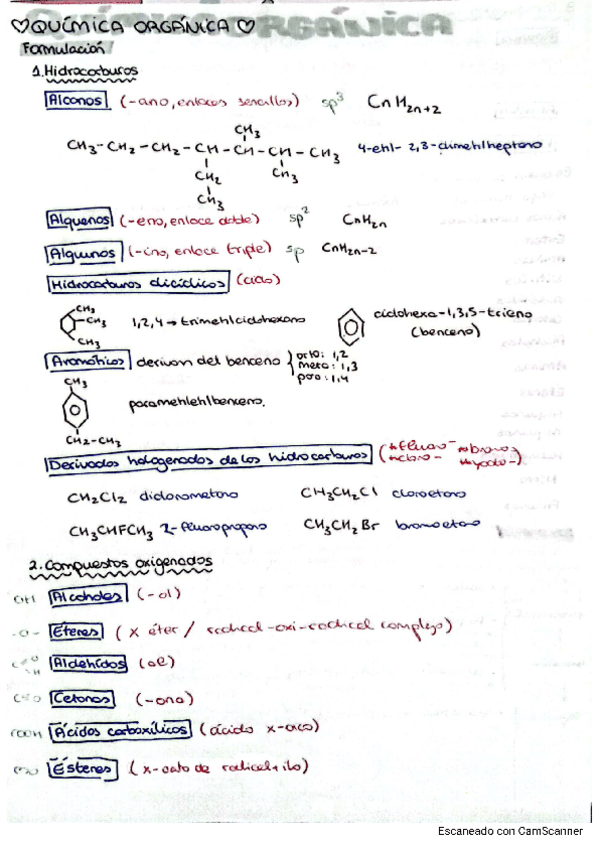 ♡QUÍMICA ORGÁNICA♡
Formulación
1. Hidrocarburos
Alcanos (-ano, enlaces sencillos) sp³ CnH2n+2
CH3
CH3-CH2-CH2-CH-CH-CH-CH3 4-etil-2,3-dimetilheptano
CH2 CH3
CH3
Alquenos (-eno, enlace doble) sp² CnH2n
Alquinos (-ino, enlace triple) sp CnH2n-2
Hidrocarburos cíclicos (ciclo)
CH3
CH3 1,2,4 → trimetilciclohexano
CH3
ciclohexa-1,3,5-trieno
(benceno)
Aromáticos derivan del benceno { orto: 1,2
meta: 1,3
para: 1,4
CH3
parametiletilbenceno.
CH2-CH3
Derivados halogenados de los hidrocarburos (*fluoro- *bromo-
*cloro- *yodo-)
CH2Cl2 diclorometano CH3CH2Cl cloroetano
CH3CHFCH3 2-fluoropropano CH3CH2Br bromoetano
2. Compuestos oxigenados
OH Alcoholes (-ol)
-O- Éteres (x éter / radical-oxi-radical complejo)
C=O H Aldehídos (al)
C=O Cetonas (-ona)
COOH Ácidos carboxílicos (ácido x-oico)
Ésteres (x-oato de radical+ilo)
Escaneado con CamScanner